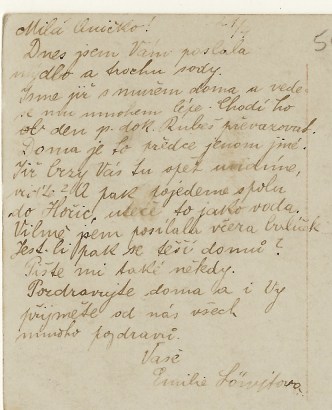 Milá Aničko!
Dnes jsem Vám poslala
mýdlo a trochu sody.
Jsme již s mužem doma a vede
se mu mnohem lépe. Chodí ho
ob den p. dok. Rubeš převazovat.
Doma je to přece jenom jiné.
Již brzy Vás tu opět uvidíme,
A pak pojedeme spolu
do Hořic, uteče to jako voda.
Vilmě jsem posílala včera balíček
Jest-li pak se těší domů?
Pište mi také někdy.
Pozdravujte doma a i Vy
přijměte od nás všech
mnoho pozdravů.
Vaše
Emilie